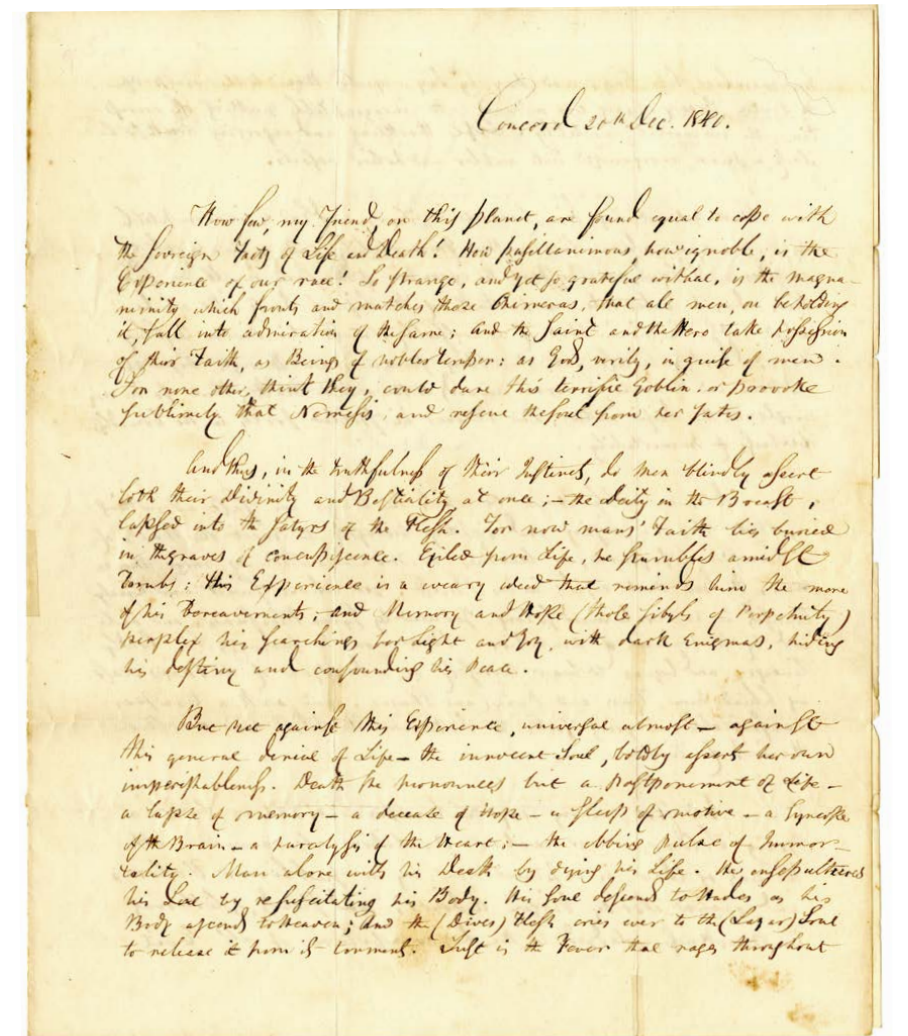 Concord 20th Dec. 1840.
How few, my Friend, on this planet, are found equal to cope with
the sovereign facts of Life and Death! How pusillanimous, how ignoble, is the
Experience of our race! So strange, and yet so grateful withal, is the magna-
nimity which fronts and matches these Chimeras, that all men, on beholding
it, fall into admiration of the same; and the Saint and the Hero take possession
of their Faith, as Beings of nobler temper: as Gods, verily, in guise of men.
For none other, think they, could dare this terrific Goblin, or provoke
sublimely that Nemesis, and rescue the soul from her fates.
And thus, in the truthfulness of their Instincts, do men blindly assert
both their Divinity and Bestiality at once;— the Deity in the Breast,
lapsed into the Satyrs of the Flesh. For now mans' Faith lies buried
in the graves of concupiscence. Exiled from Life, he stumbles amidst
Tombs: this Experience is a weary weed that reminds him the more
of his bereavements; and Memory and Hope (those Sibyls of Perpetuity)
perplex his searchings for Light and Joy, with dark Enigmas, hiding
his destiny and confounding his Peace.
But yet against this Experience, universal almost — against
this general denial of Life — the innocent Soul, boldly assert her own
imperishableness. Death she pronounces but a Postponement of Life —
a lapse of memory — a decease of Hope — a sleep of motive — a Syncope
of the Brain — a paralysis of the Heart; — the ebbing pulse of Immor-
tality. Man alone with his Death by dying his Life. He ensepulchres
his Soul by resuscitating his Body. His Soul descends to Hades as his
Body ascends to Heaven; and the (Dives) Flesh cries ever to the (Lazar) Soul
to release it from its torments. Lust is the Fever that rages throughout